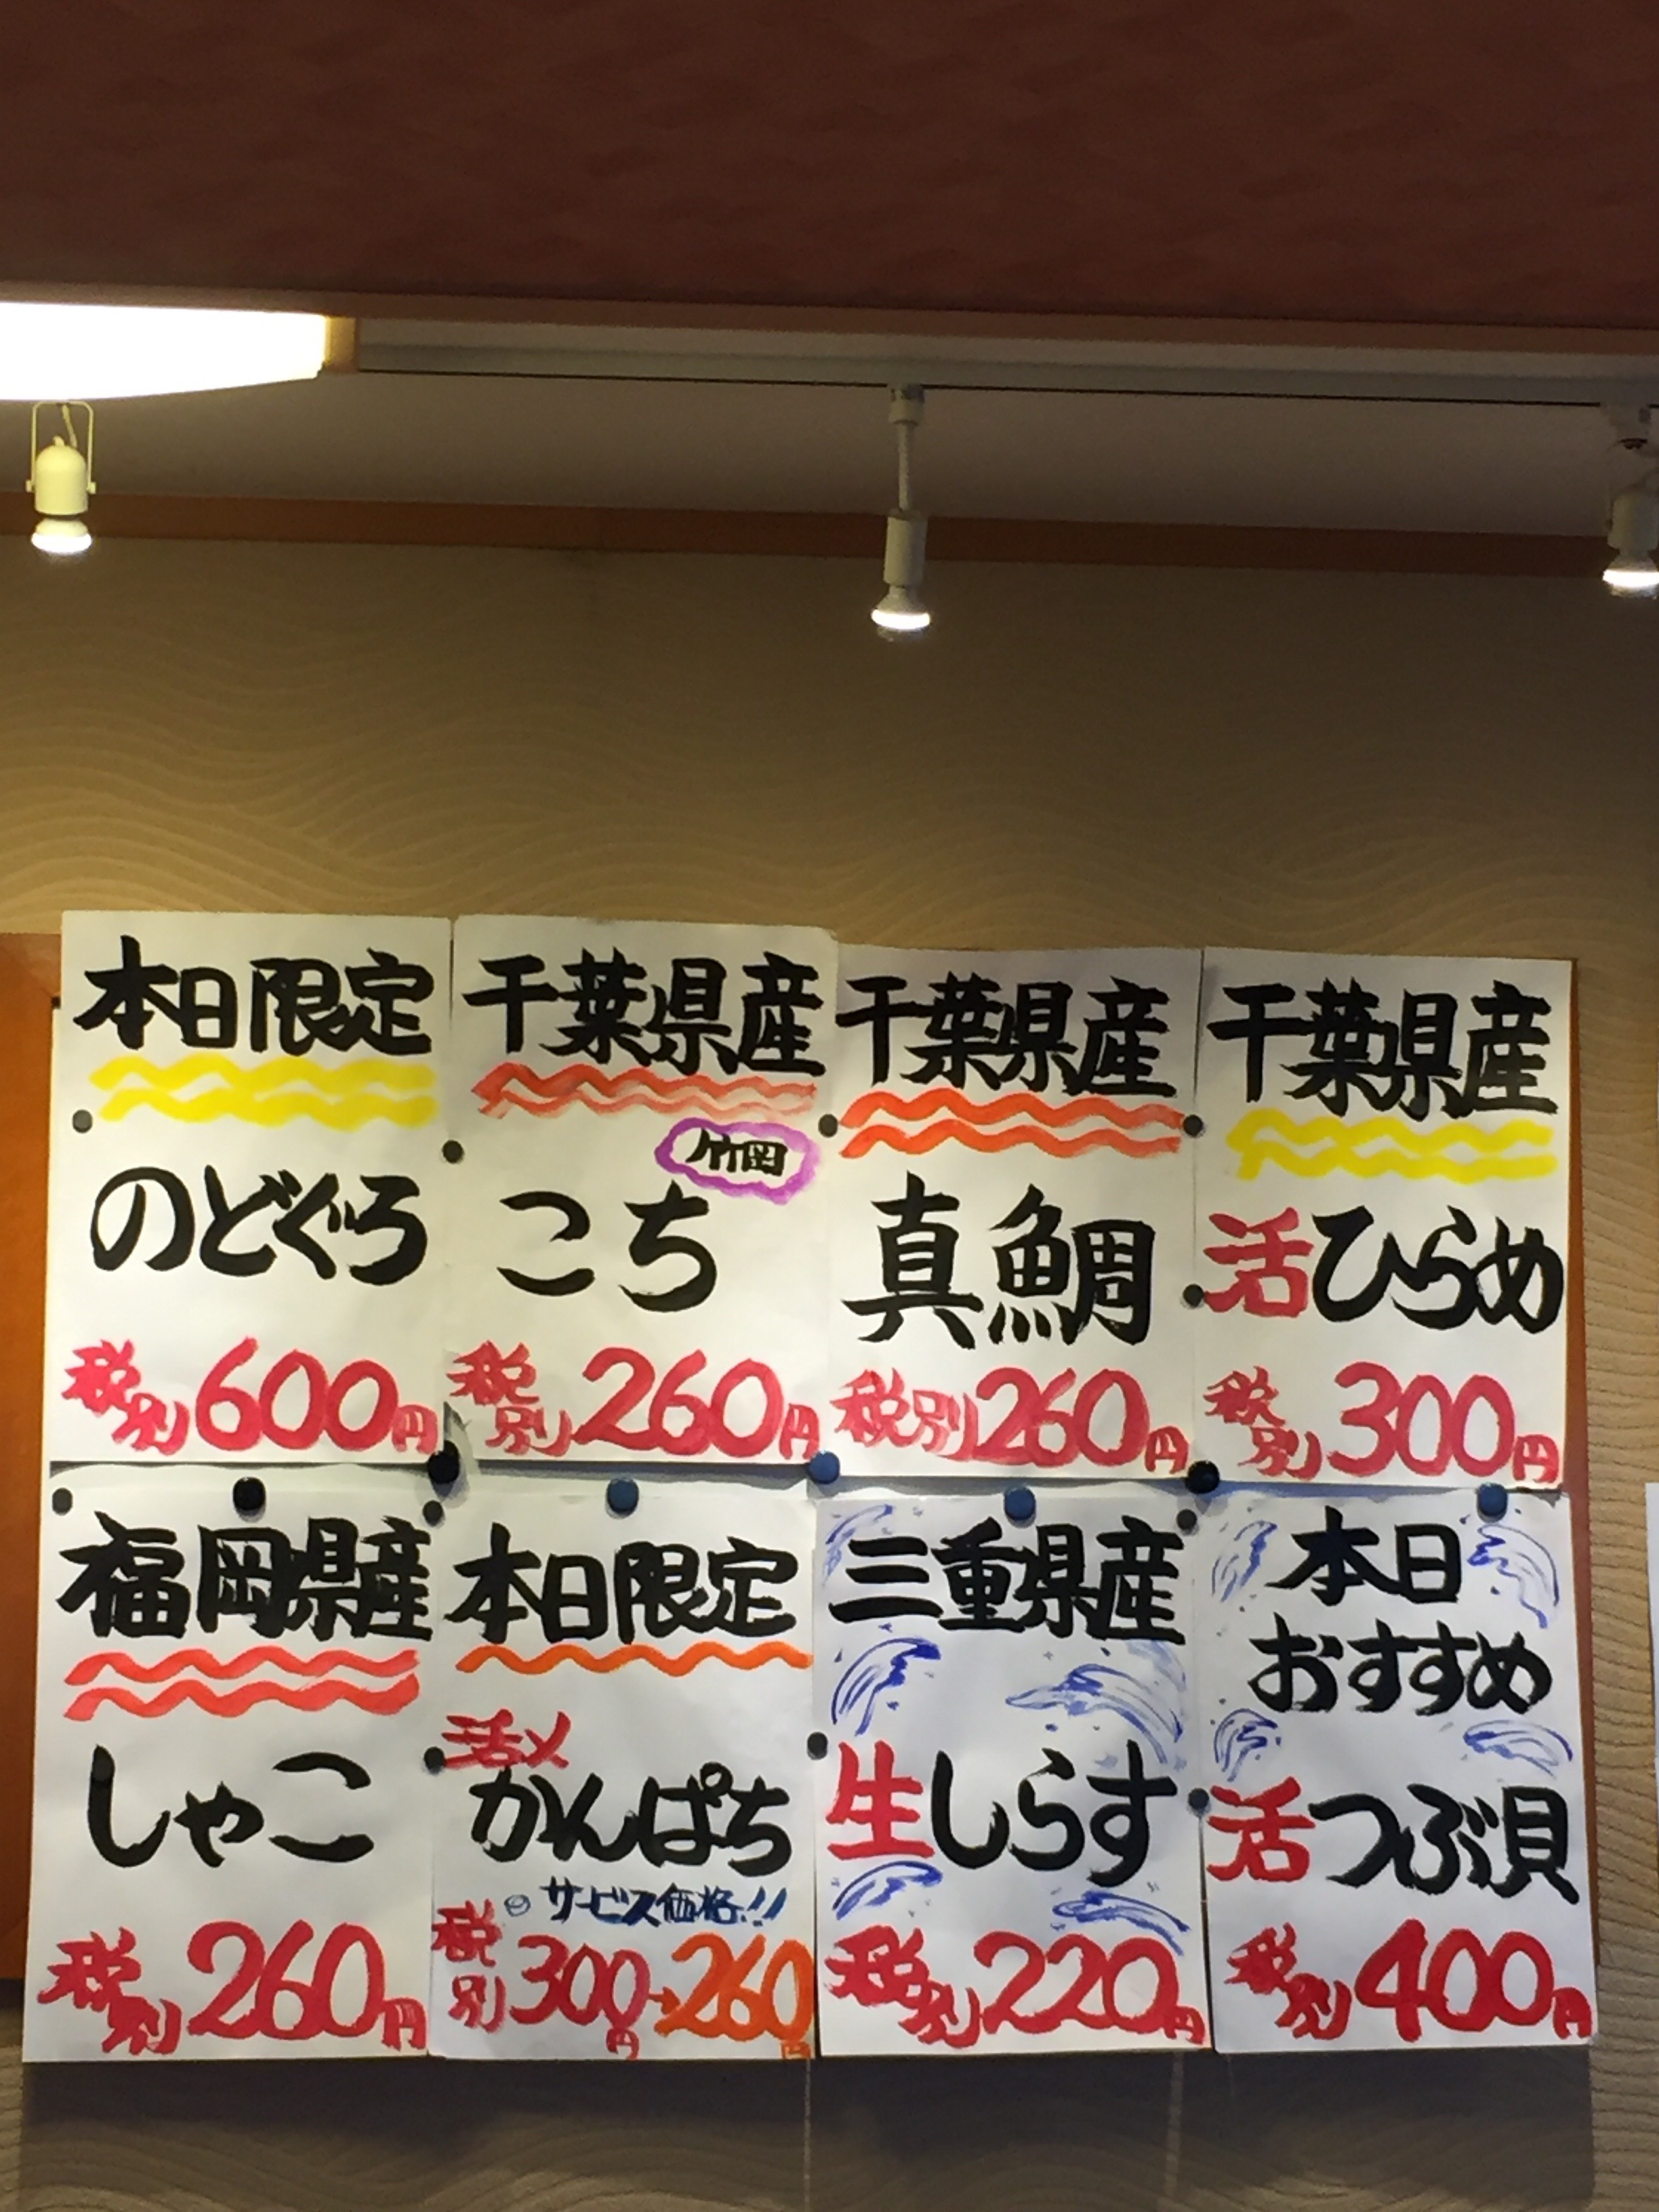 本日限定
のどぐろ
税別600円
千葉県産
竹岡
こち
税別260円
千葉県産
真鯛
税別260円
千葉県産
活ひらめ
税別300円
福岡県産
しゃこ
税別260円
本日限定
活〆
かんぱち
サービス価格!!
税別300円→260円
三重県産
生しらす
税別220円
本日
おすすめ
活つぶ貝
税別400円